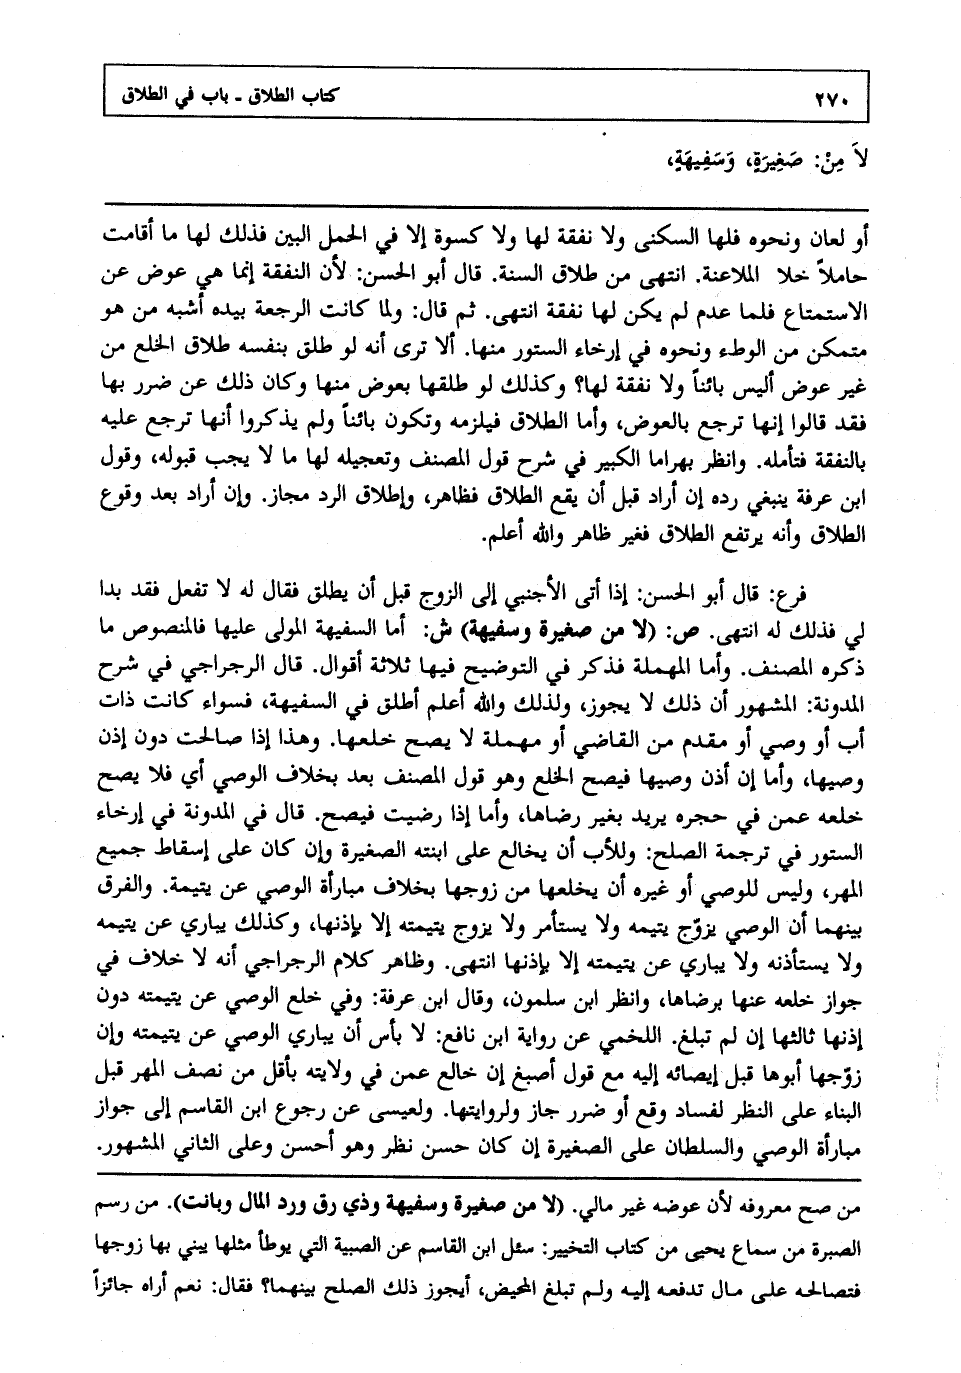 ٢٧٠ كتاب الطلاق ـ باب في الطلاق
لاَ مِنْ: صَغِيرَةٍ، وَسَفِيهَةٍ،
أو لعان ونحوه فلها السكنى ولا نفقة لها ولا كسوة إلا في الحمل البين فذلك لها ما أقامت
حاملاً خلا الملاعنة. انتهى من طلاق السنة. قال أبو الحسن: لأن النفقة إنما هي عوض عن
الاستمتاع فلما عدم لم يكن لها نفقة انتهى. ثم قال: ولما كانت الرجعة بيده أشبه من هو
متمكن من الوطء ونحوه في إرخاء الستور منها. ألا ترى أنه لو طلق بنفسه طلاق الخلع من
غير عوض أليس بائناً ولا نفقة لها؟ وكذلك لو طلقها بعوض منها وكان ذلك عن ضرر بها
فقد قالوا إنها ترجع بالعوض، وأما الطلاق فيلزمه وتكون بائناً ولم يذكروا أنها ترجع عليه
بالنفقة فتأمله. وانظر بهراما الكبير في شرح قول المصنف وتعجيله لها ما لا يجب قبوله، وقول
ابن عرفة ينبغي رده إن أراد قبل أن يقع الطلاق فظاهر، وإطلاق الرد مجاز. وإن أراد بعد وقوع
الطلاق وأنه يرتفع الطلاق فغير ظاهر والله أعلم.
فرع: قال أبو الحسن: إذا أتى الأجنبي إلى الزوج قبل أن يطلق فقال له لا تفعل فقد بدا
لي فذلك له انتهى. ص: (لا من صغيرة وسفيهة) ش: أما السفيهة المولى عليها فالمنصوص ما
ذكره المصنف. وأما المهملة فذكر في التوضيح فيها ثلاثة أقوال. قال الرجراجي في شرح
المدونة: المشهور أن ذلك لا يجوز، ولذلك والله أعلم أطلق في السفيهة، فسواء كانت ذات
أب أو وصي أو مقدم من القاضي أو مهملة لا يصح خلعها. وهذا إذا صالحت دون إذن
وصيها، وأما إن أذن وصيها فيصح الخلع وهو قول المصنف بعد بخلاف الوصي أي فلا يصح
خلعه عمن في حجره يريد بغير رضاها، وأما إذا رضيت فيصح. قال في المدونة في إرخاء
الستور في ترجمة الصلح: وللأب أن يخالع على ابنته الصغيرة وإن كان على إسقاط جميع
المهر، وليس للوصي أو غيره أن يخلعها من زوجها بخلاف مبارأة الوصي عن يتيمة. والفرق
بينهما أن الوصي يزوّج يتيمه ولا يستأمر ولا يزوج يتيمته إلا بإذنها، وكذلك يباري عن يتيمه
ولا يستأذنه ولا يباري عن يتيمته إلا بإذنها انتهى. وظاهر كلام الرجراجي أنه لا خلاف في
جواز خلعه عنها برضاها، وانظر ابن سلمون، وقال ابن عرفة: وفي خلع الوصي عن يتيمته دون
إذنها ثالثها إن لم تبلغ. اللخمي عن رواية ابن نافع: لا بأس أن يباري الوصي عن يتيمته وإن
زوّجها أبوها قبل إيصائه إليه مع قول أصبغ إن خالع عمن في ولايته بأقل من نصف المهر قبل
البناء على النظر لفساد وقع أو ضرر جاز ولروايتها. ولعيسى عن رجوع ابن القاسم إلى جواز
مبارأة الوصي والسلطان على الصغيرة إن كان حسن نظر وهو أحسن وعلى الثاني المشهور.
من صح معروفه لأن عوضه غير مالي. (لا من صغيرة وسفيهة وذي رق ورد المال وبانت). من رسم
الصبرة من سماع يحيى من كتاب التخيير: سئل ابن القاسم عن الصبية التي يوطأ مثلها يبني بها زوجها
فتصالحه على مال تدفعه إليه ولم تبلغ المحيض، أيجوز ذلك الصلح بينهما؟ فقال: نعم أراه جائزاً